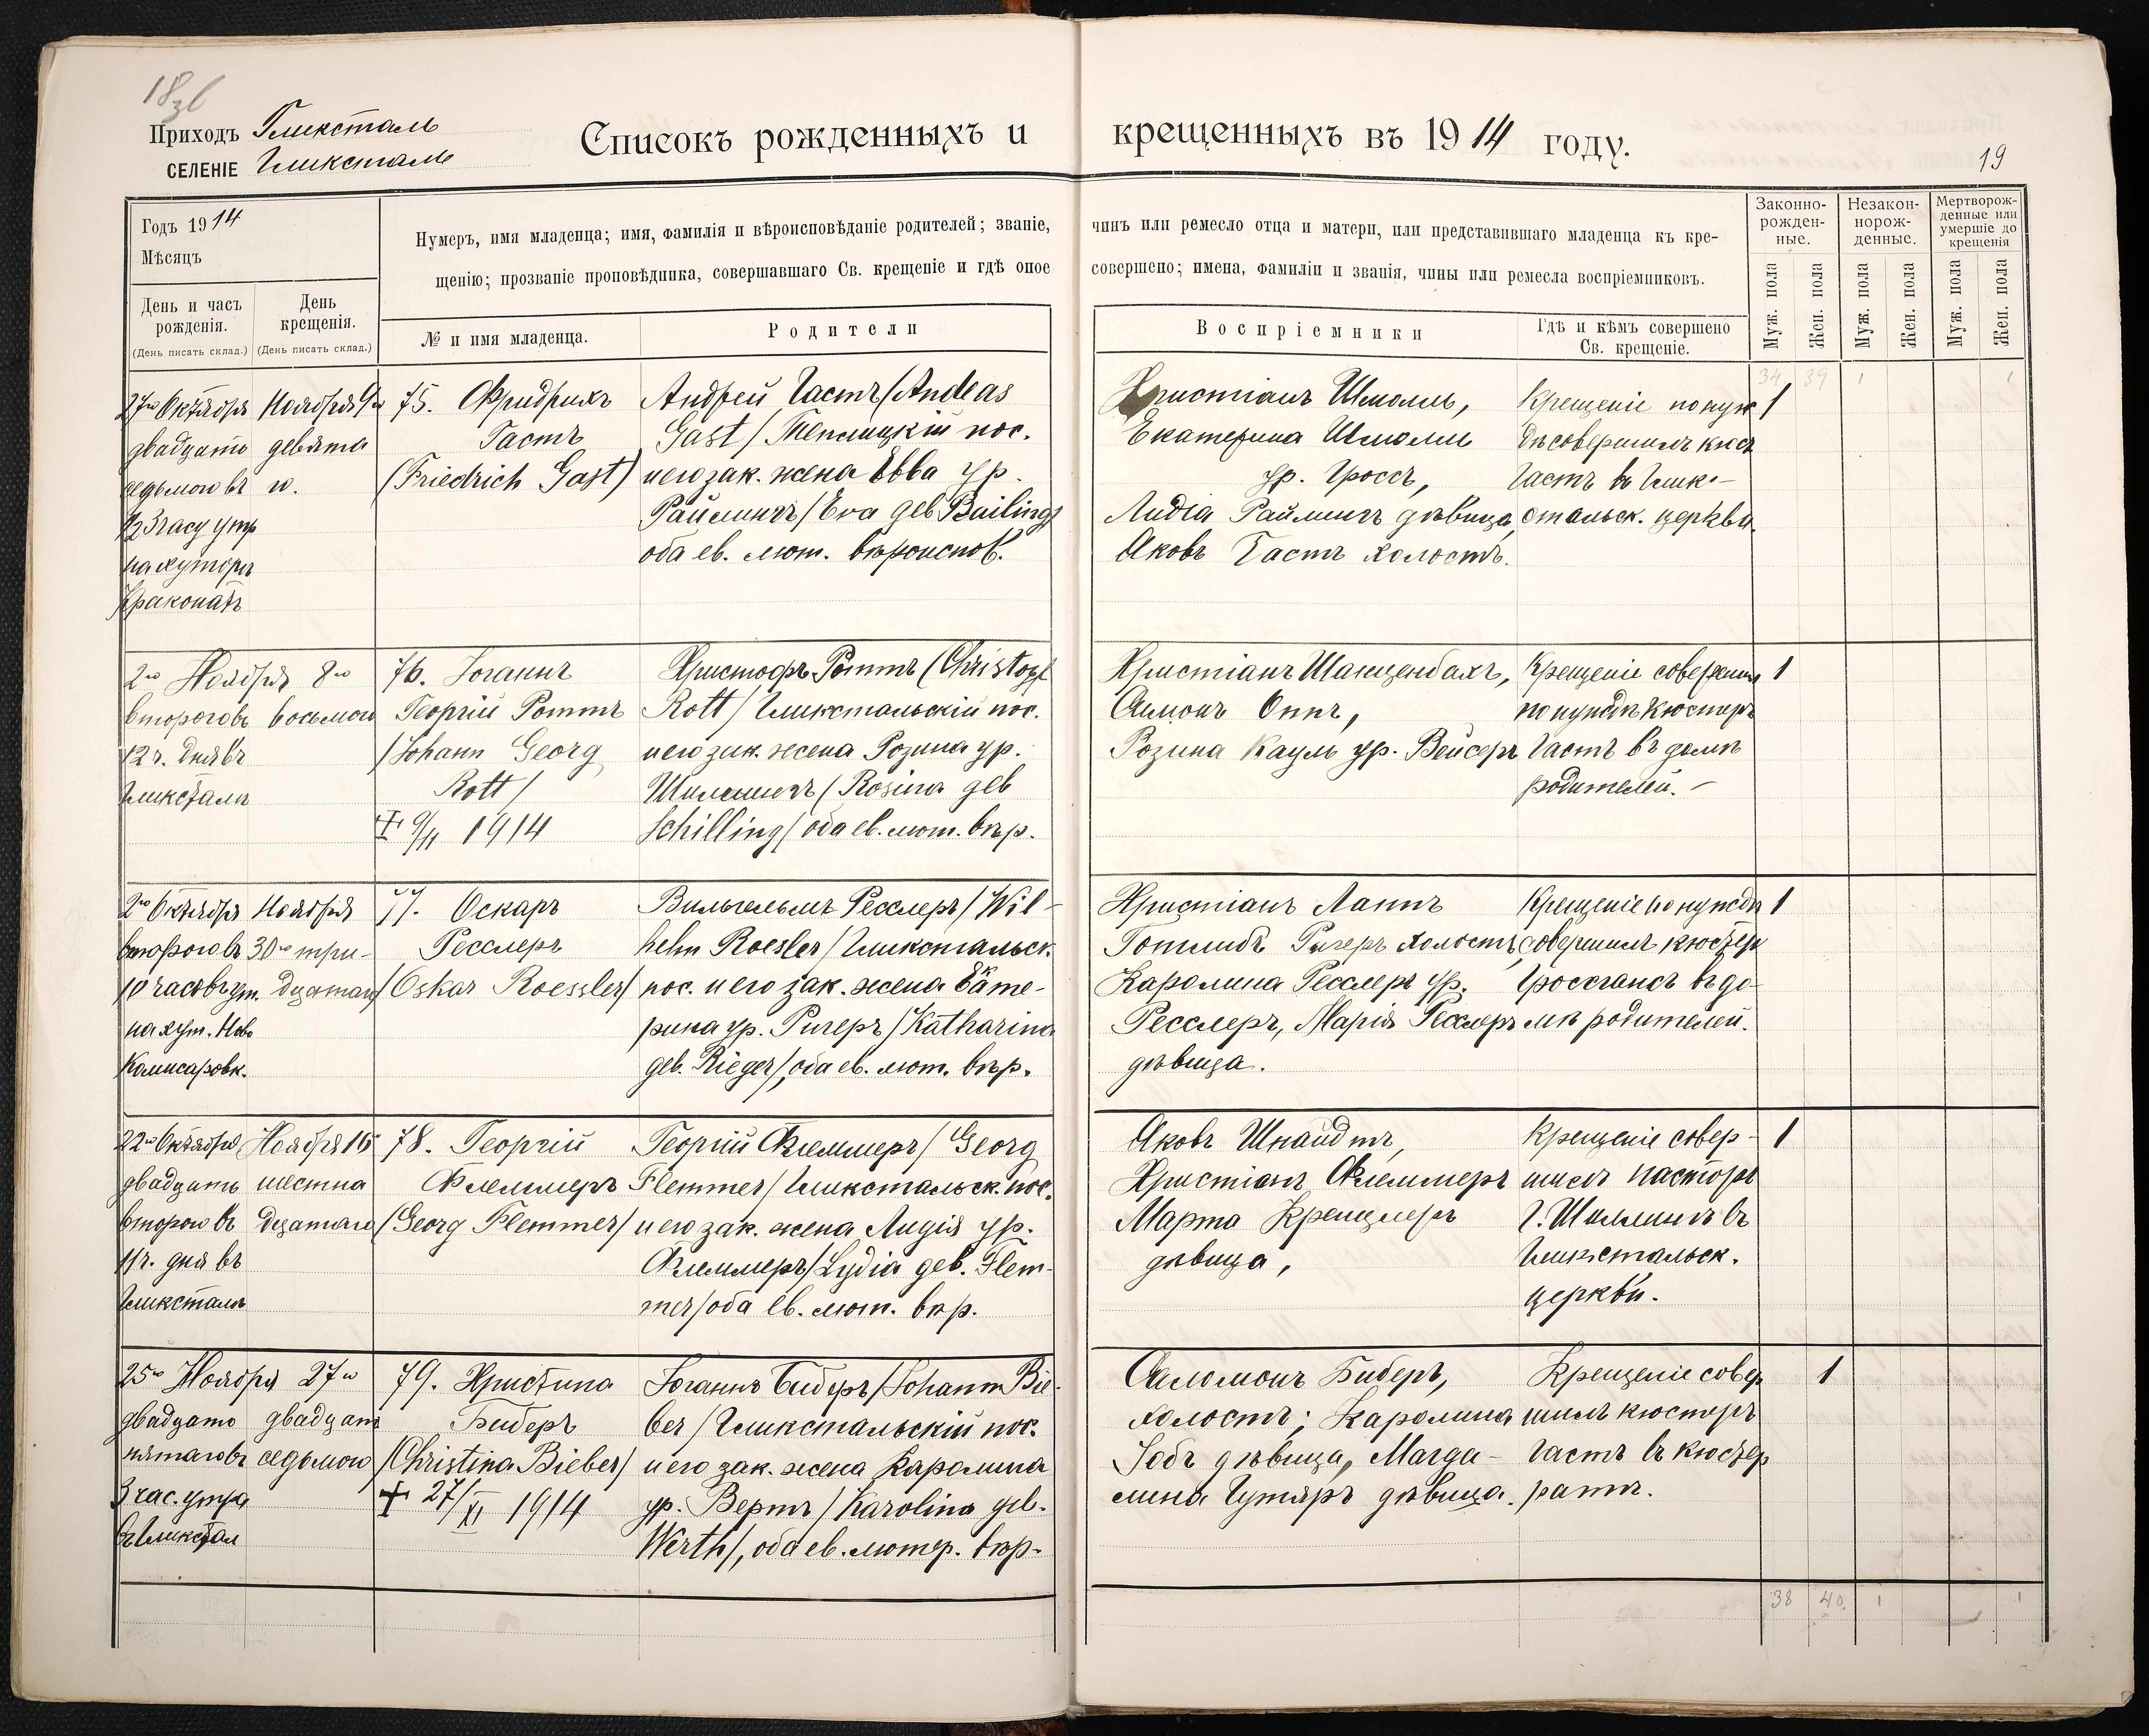 18
Приходъ Гликсталь
СЕЛЕНІЕ Гликсталь
Списокъ рожденныхъ и крещенныхъ въ 1914 году.
19
Годъ 1914
Мѣсяцъ
День и часъ рожденія.
(День писать склад.)
День крещенія.
(День писать склад.)
Нумеръ, имя младенца; имя, фамилія и вѣроисповѣданіе родителей; званіе, чинъ или ремесло отца и матери, или представившаго младенца къ кре-
щенію; прозваніе проповѣдника, совершавшаго Св. крещеніе и гдѣ оное совершено; имена, фамиліи и званія, чины или ремесла воспріемниковъ.
№ и имя младенца.
Родители
Воспріемники
Гдѣ и кѣмъ совершено Св. крещеніе.
Законно-
рожден-
ные.
Незакон-
норож-
денные.
Мертворож-
денные или
умершіе до
крещенія
Муж. пола
Жен. пола
Муж. пола
Жен. пола
Муж. пола
Жен. пола
34 39 1 1
27го Октября
двадцать
седьмого въ
½3 часу утр
на хуторѣ
Ноября 9го
девята
го.
75. Фридрихъ
Гастъ
(Friedrich Gast)
Андрей Гастъ/Andeas
Gast/Теплицкій пос.
и его зак. жена Евва ур.
Райлингъ/Eva geb Railing/
оба ев. лют. вѣроиспов.
Христіанъ Шмолль,
Екатерина Шмолль
ур. Гроссъ,
Лидія Райлингъ дѣвица,
Яковъ Гастъ холостъ.
Крещеніе по нуж
дѣ совершилъ кюст
Гастъ въ Глик-
стальск. церкви.
1
2го Ноября 8го
второго въ восьмого
12 ч. дня въ
Гликсталѣ
76. Іоганнъ
Георгій Роттъ
/Johann Georg
Rott/
† 9/11 1914
Христофъ Роттъ (Christoph
Rott/Гликстальскій пос.
и его зак. жена Розина ур.
Шиллингъ/Rosina geb
Schilling/оба ев. лют. вѣр.
Христіанъ Шанценбахъ,
Симонъ Оппъ,
Розина Кауль ур. Вейсеръ
Крещеніе совершил
по нуждѣ кюстеръ
Гастъ въ домѣ
родителей.-
1
2го Октября
второго въ
10 часовъ ут.
на хут. Ново
Комисаровк.
Ноября
30го три-
дцатаго
77. Оскаръ
Ресслеръ
/Oskar Roessler/
Вильгельмъ Ресслеръ/Wil-
helm Roesler/Гликстальск.
пос. и его зак. жена Екате-
рина ур. Ригеръ/Katharina
geb. Rieger/, оба ев. лют. вѣр.
Христіанъ Лаппъ
Готлибъ Ригеръ холостъ,
Каролина Ресслеръ ур.
Ресслеръ, Марія Ресслеръ
дѣвица.
Крещеніе по нуждѣ
совершилъ кюстеръ
Гроссгансъ въ до-
мѣ родителей.
1
22го Октября
двадцать
второго въ
11 ч. дня въ
Гликсталѣ
Ноября 16
шестна
дцатаго
78. Георгій
Флеммеръ
(Georg Flemmer/
Георгій Флеммеръ/Georg
Flemmer/Гликстальск. пос.
и его зак. жена Лидія ур.
Флеммеръ/Lydia geb. Flem-
mer/оба ев. лют. вѣр.
Яковъ Шнайдтъ,
Христіанъ Флеммеръ
Марта Кренцлеръ
дѣвица,
Крещеніе совер-
шилъ пасторъ
Г. Шиллингъ въ
Гликстальск.
церкви.
1
25го Ноября 27го
двадцать
пятаго въ
3 час. утра
въ Гликстал
двадцать
седьмого
79. Христина
Биберъ
/Christina Bieber/
† 27/XI 1914
Іоганнъ Биберъ/Johann Bie-
ber/Гликстальскій пос.
и его зак. жена Каролина
ур. Вертъ/Karolina geb.
Werth/, оба ев. лютер. вѣр.
Саломонъ Биберъ,
холостъ; Каролина
Іобъ дѣвица, Магда-
лина Гутяръ дѣвица.
Крещеніе совер
шилъ кюстеръ
Гастъ въ кюстер
ратъ.
1
38 40 1 1